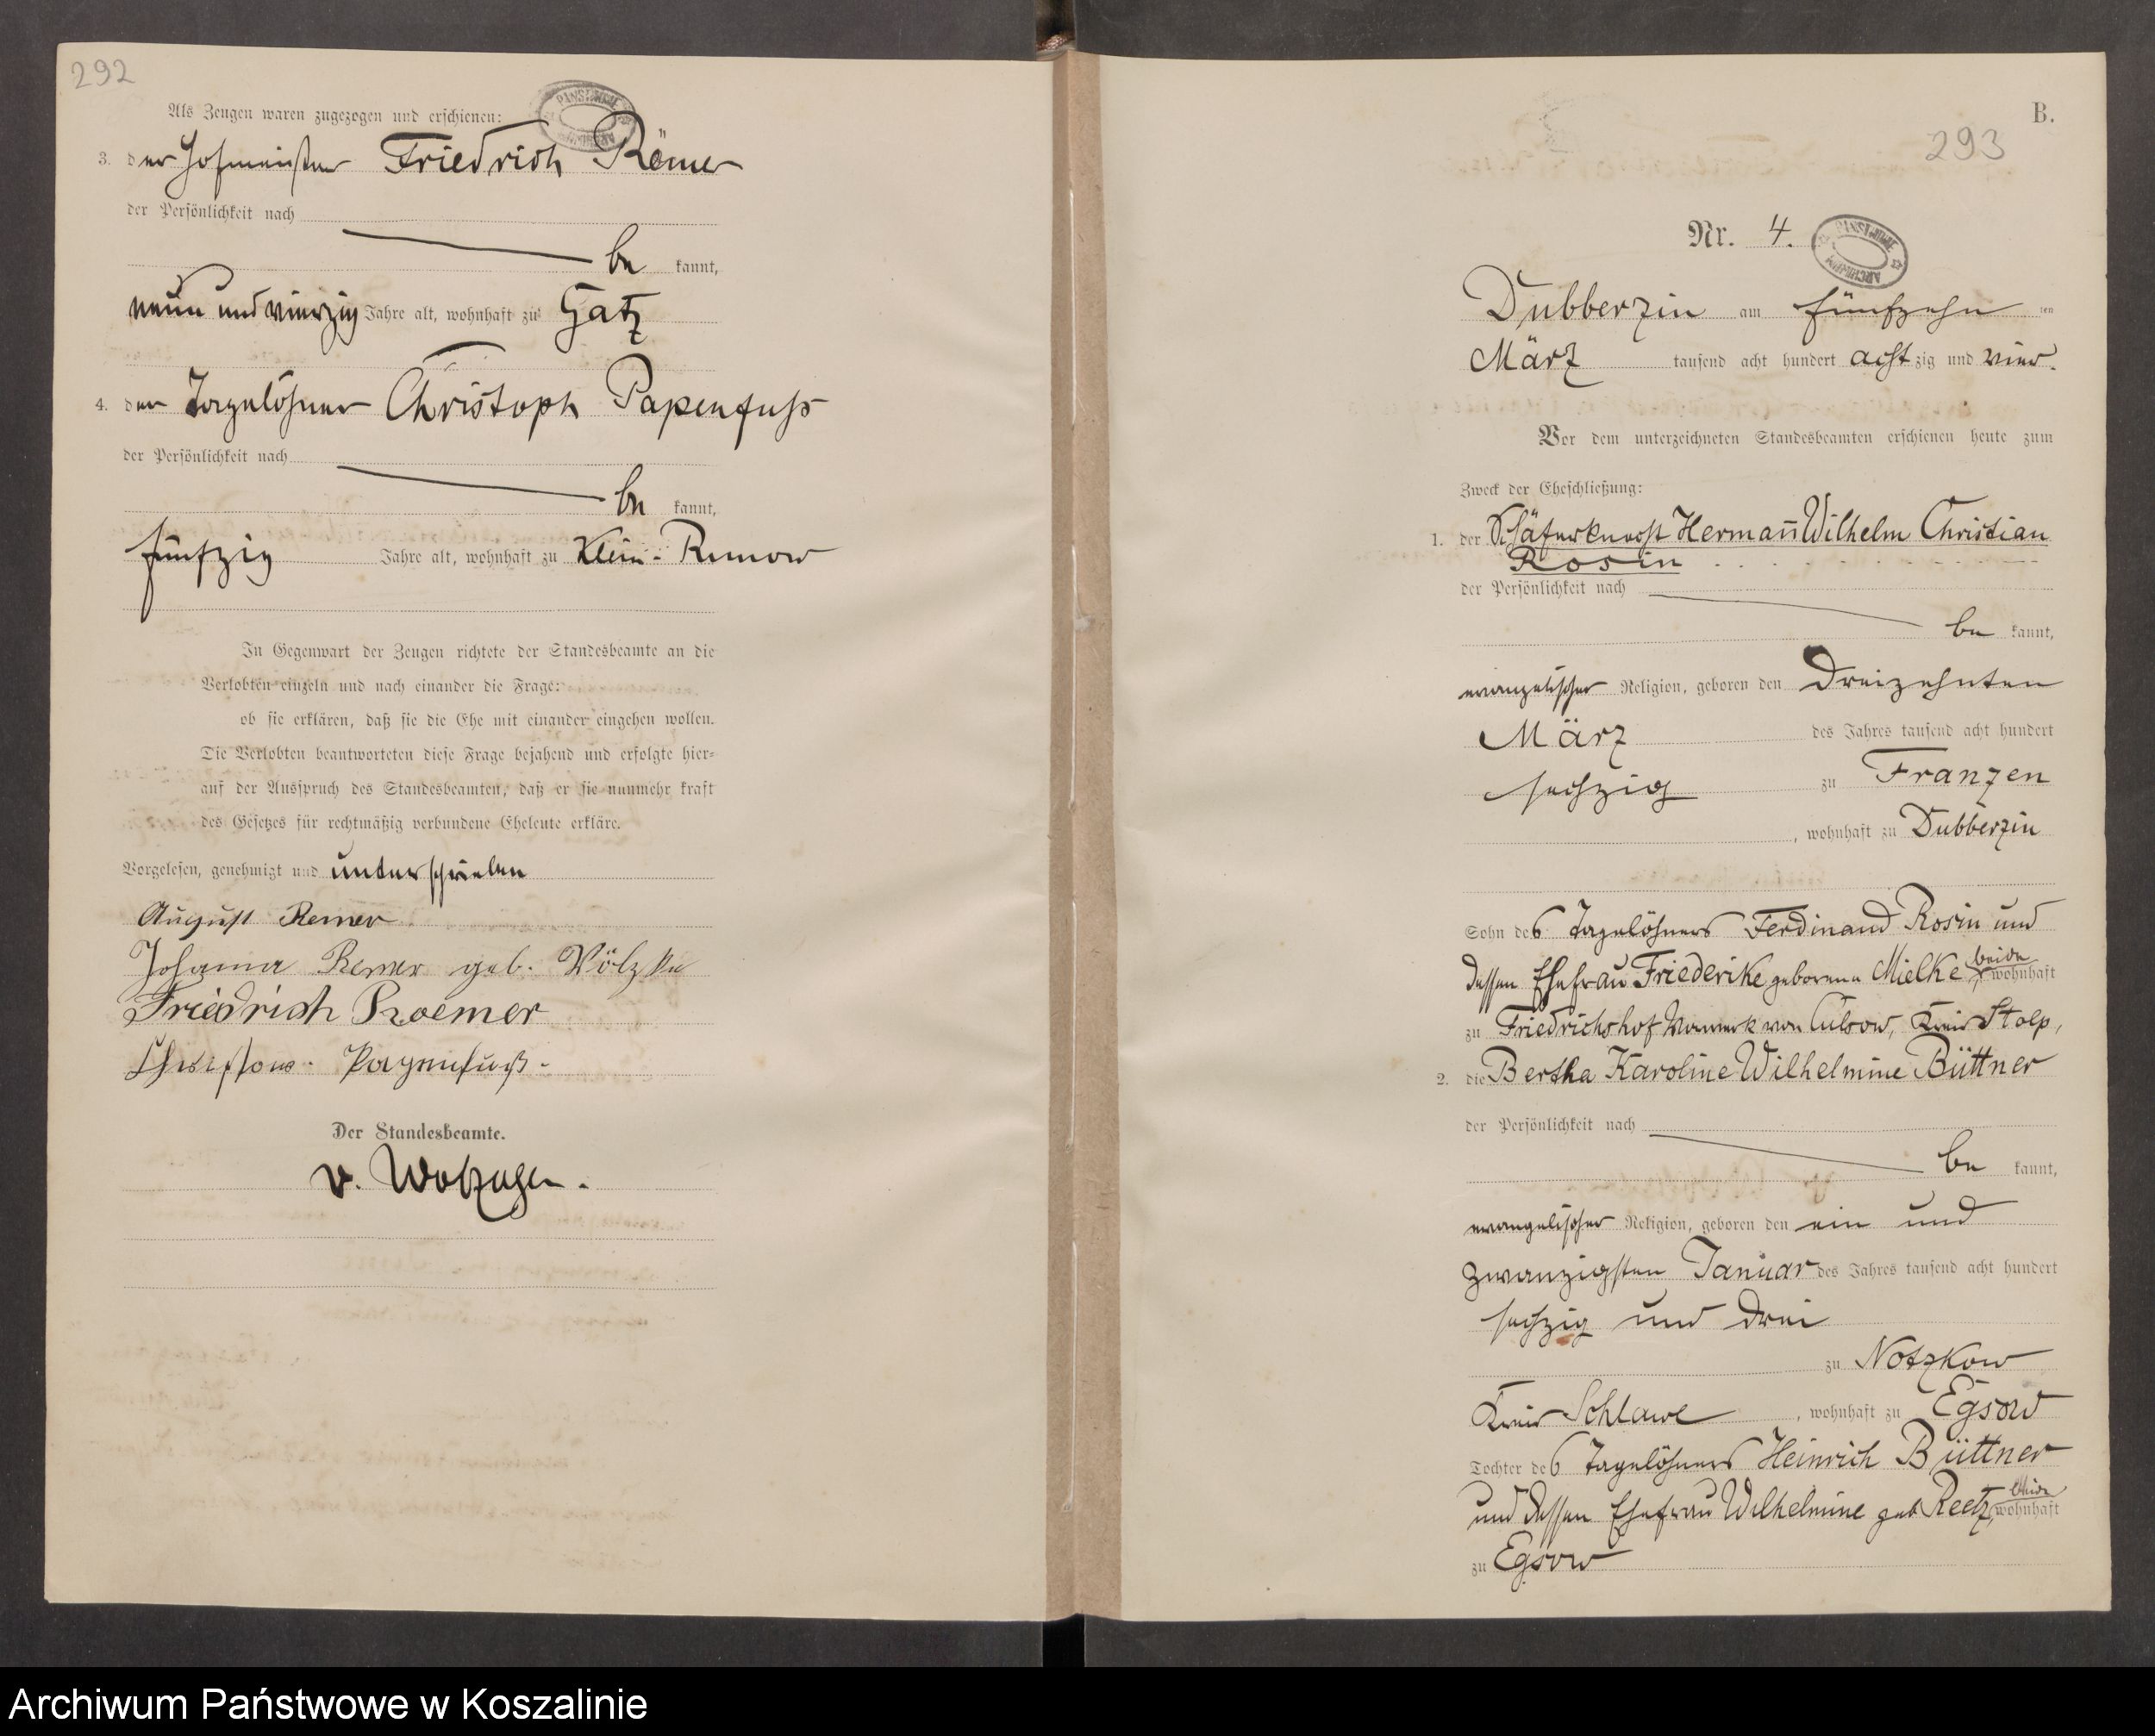 292
Als Zeugen waren zugezogen und erschienen:
PAŃSTWOWE ARCHIWUM
3. der Hofmeister Friedrich Römer
der Persönlichkeit nach
be kannt,
neun und vierzig Jahre alt, wohnhaft zu Gatz
4. der Tagelöhner Christoph Papenfuß
der Persönlichkeit nach
be kannt,
fünfzig Jahre alt, wohnhaft zu Klein-Runow
In Gegenwart der Zeugen richtete der Standesbeamte an die
Verlobten einzeln und nach einander die Frage:
ob sie erklären, daß sie die Ehe mit einander eingehen wollen.
Die Verlobten beantworteten diese Frage bejahend und erfolgte hier-
auf der Ausspruch des Standesbeamten, daß er sie nunmehr kraft
des Gesetzes für rechtmäßig verbundene Eheleute erkläre.
Vorgelesen, genehmigt und unterschrieben
August Remer
Johanna Remer geb. Völzke
Friedrich Roemer
Papenfuß.
Der Standesbeamte.
B.
293
Nr. 4.
PAŃSTWOWE ARCHIWUM
Dubberzin am fünfzehn ten
März tausend acht hundert achtzig und vier.
Vor dem unterzeichneten Standesbeamten erschienen heute zum
Zweck der Eheschließung:
1. der Schäferknecht Hermann Wilhelm Christian
Rosin
der Persönlichkeit nach
be kannt,
evangelischer Religion, geboren den dreizehnten
März des Jahres tausend acht hundert
sechzig zu Franzen
, wohnhaft zu Dubberzin
Sohn des Tagelöhners Ferdinand Rosin und
dessen Ehefrau Friederike geborene Mielke, beide wohnhaft
zu Friedrichshof Vorwerk von Culsow, Kreis Stolp,
2. die Bertha Karoline Wilhelmine Büttner
der Persönlichkeit nach
be kannt,
evangelischer Religion, geboren den ein und
zwanzigsten Januar des Jahres tausend acht hundert
sechzig und drei
zu Notzkow
Kreis Schlawe, wohnhaft zu Egsow
Tochter des Tagelöhners Heinrich Büttner
und dessen Ehefrau Wilhelmine geb. Reetz, beide wohnhaft
zu Egsow
Archiwum Państwowe w Koszalinie